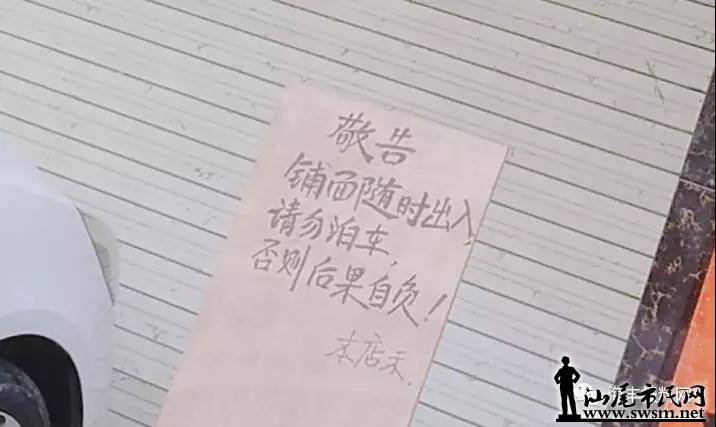 敬告
铺面随时出入,
请勿泊车,
否则后果自负!
本店示.
汕尾市民网
www.swsm.net